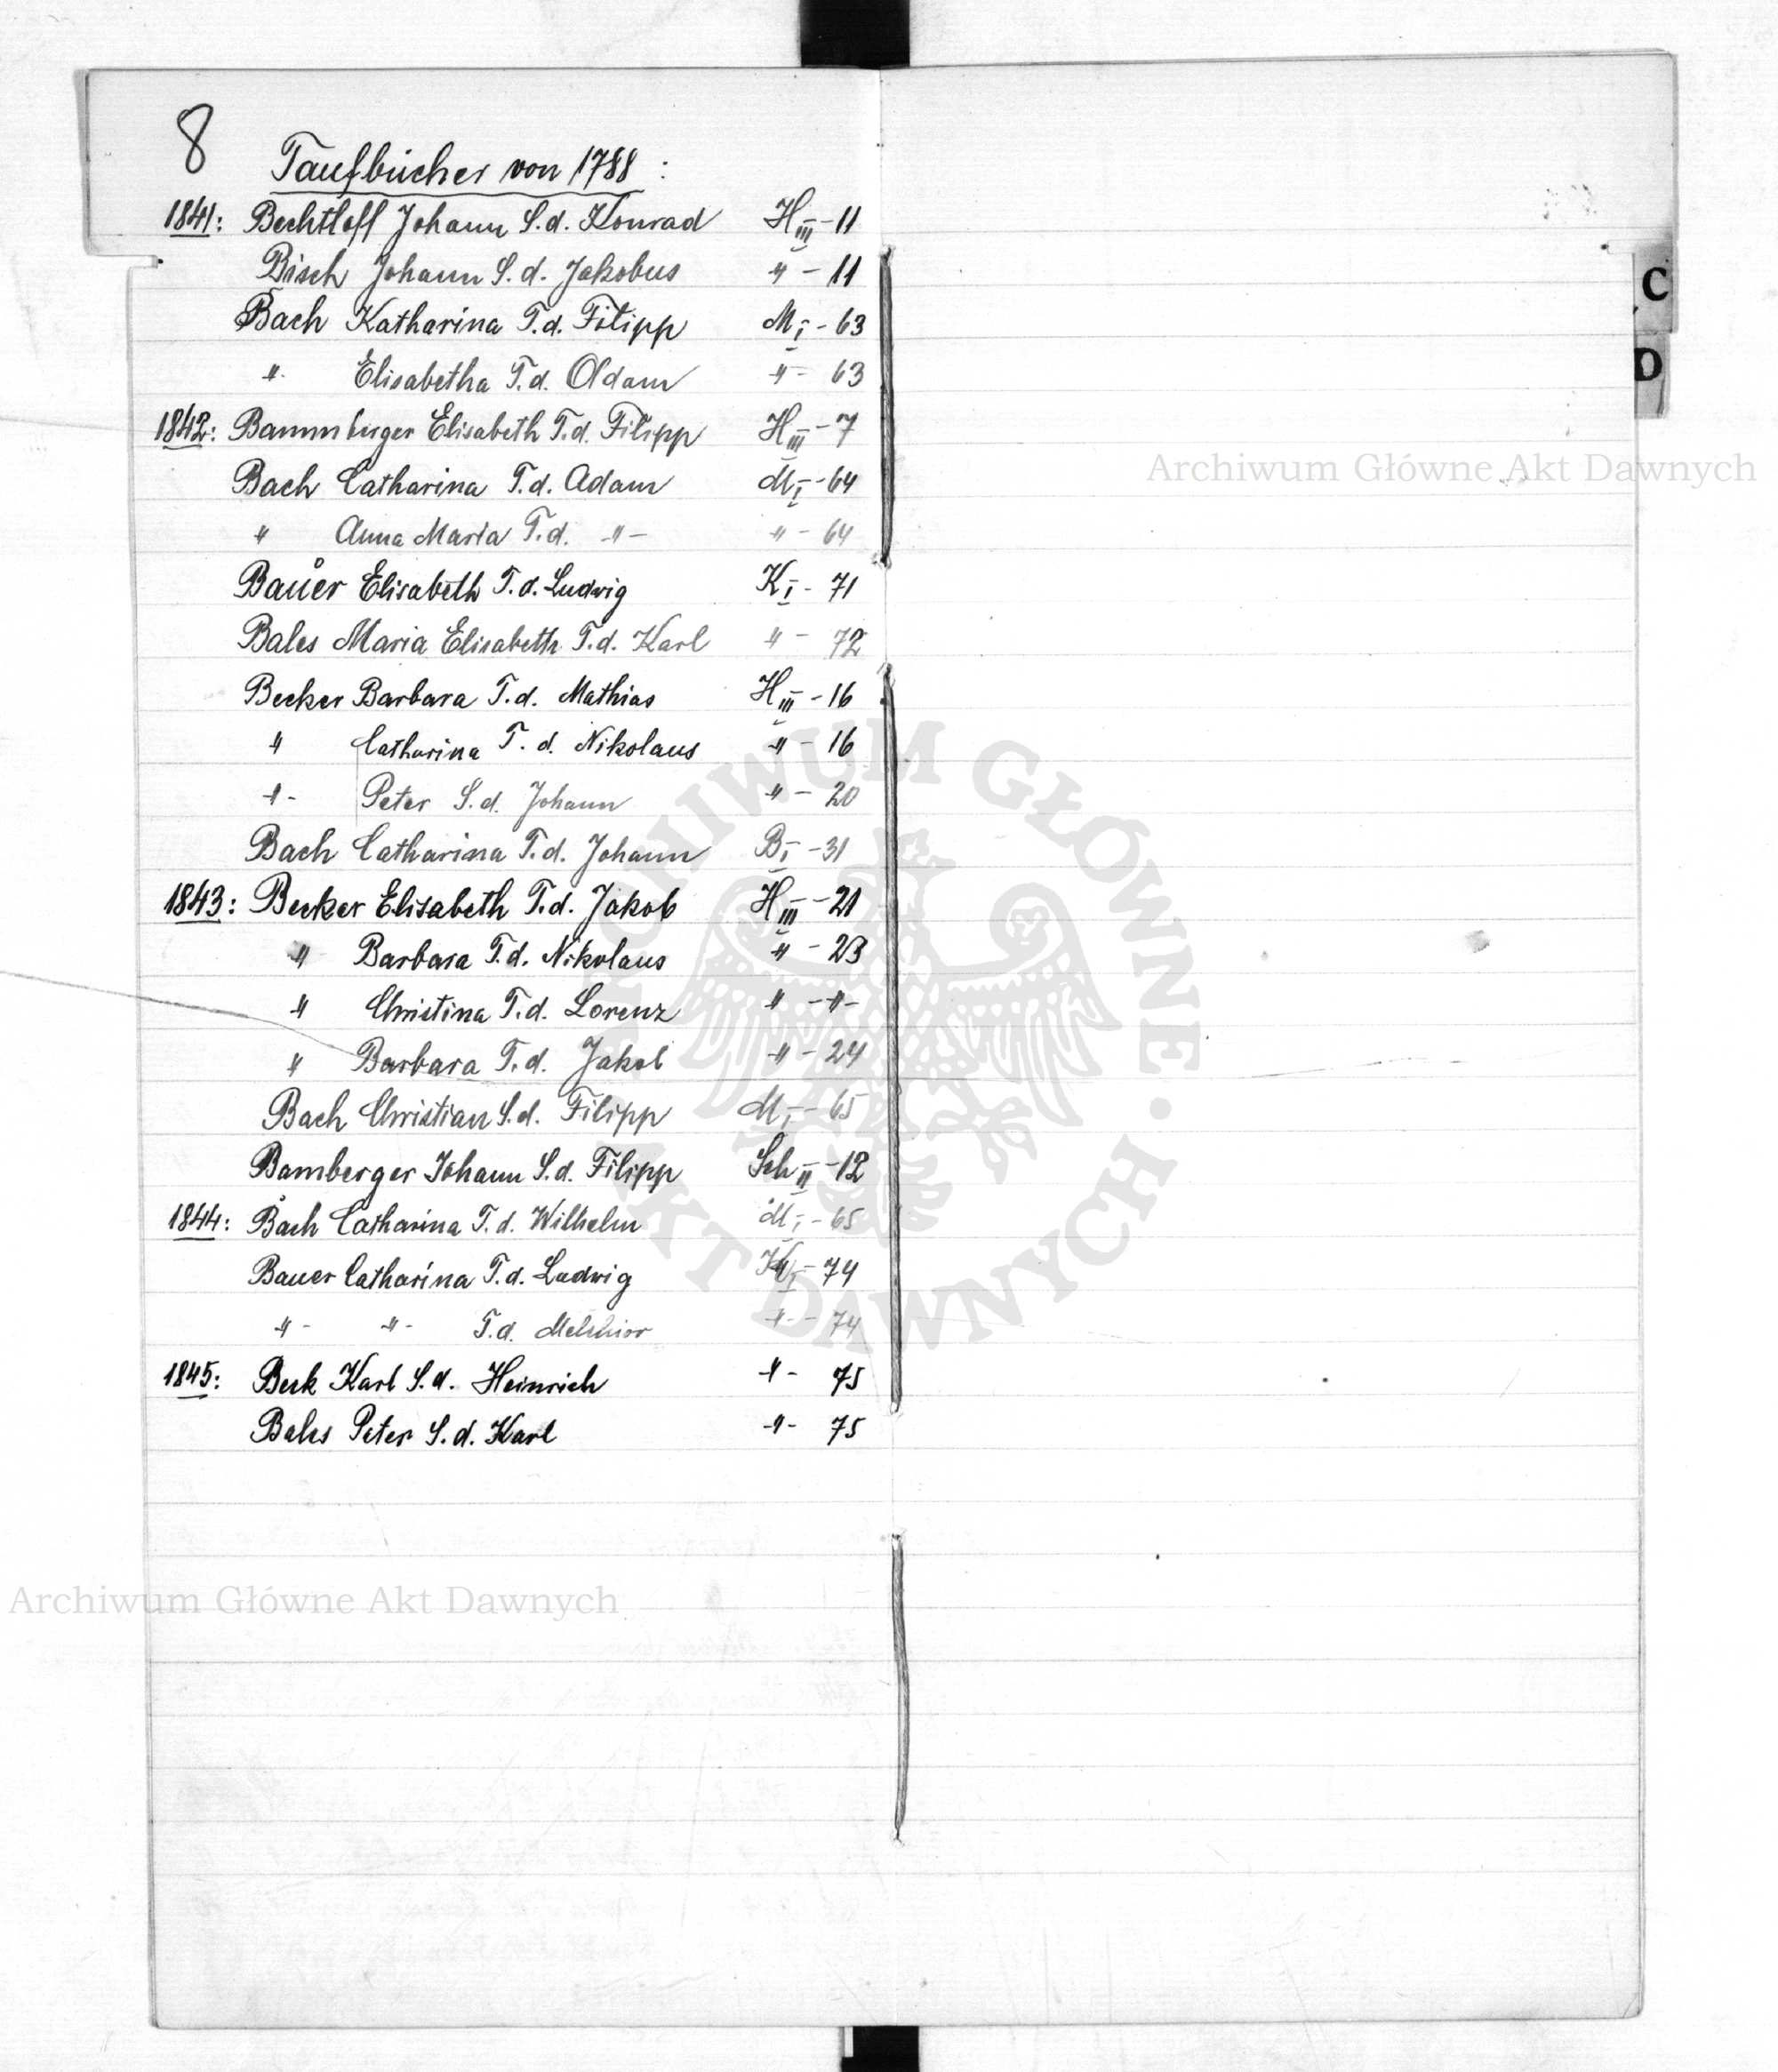 8
Taufbücher von 1788 :
1841: Bechtloff Johann S.d. Konrad H III - 11
Bisch Johann S.d. Jakobus " - 11
Bach Katharina T.d. Filipp M I - 63
" Elisabetha T.d. Adam " - 63
1842: Bammberger Elisabeth T.d. Filipp H III - 7
Bach Catharina T.d. Adam M I - 64
" Anna Maria T.d. -"- " - 64
Bauer Elisabeth T.d. Ludwig K I - 71
Bales Maria Elisabeth T.d. Karl " - 72
Becker Barbara T.d. Mathias H III - 16
" Catharina T.d. Nikolaus " - 16
" - Peter S.d. Johann " - 20
Bach Catharina T.d. Johann B I - 31
1843: Becker Elisabeth T.d. Jakob H III - 21
" Barbara T.d. Nikolaus " - 23
" Christina T.d. Lorenz " - " -
" Barbara T.d. Jakob " - 24
Bach Christian S.d. Filipp M I - 65
Bamberger Johann S.d. Filipp Sch II - 12
1844: Bach Catharina T.d. Wilhelm M I - 65
Bauer Catharina T.d. Ludwig K I - 74
" - " - T.d. Melchior " - 74
1845: Beck Karl S.d. Heinrich " - 75
Bales Peter S.d. Karl -"- 75
C
D
Archiwum Główne Akt Dawnych
ARCHIWUM GŁÓWNE · AKT DAWNYCH ·
Archiwum Główne Akt Dawnych